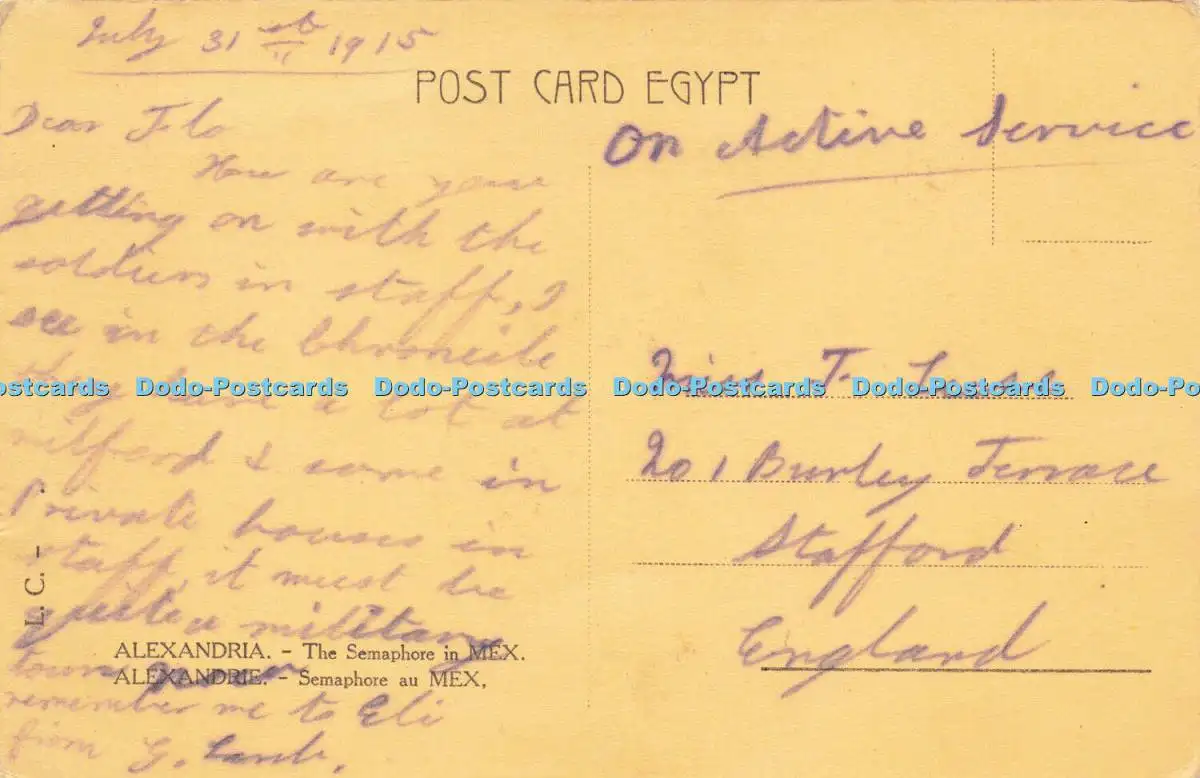 July 31st 1915
POST CARD EGYPT
On Active Service
Dear Flo
How are your
getting on with the
soldiers in staff, I
see in the Chronicle
they have a lot at
& some in
Private houses in
staff, it must be
quite a military
town now
remember me to Eli
from G. Lamb.
L. C. -
ALEXANDRIA. - The Semaphore in MEX.
ALEXANDRIE. - Semaphore au MEX,
Miss
201 Burley Terrace
Stafford
England
Dodo-Postcards Dodo-Postcards Dodo-Postcards Dodo-Postcards Dodo-Postcards Dodo-Postcards